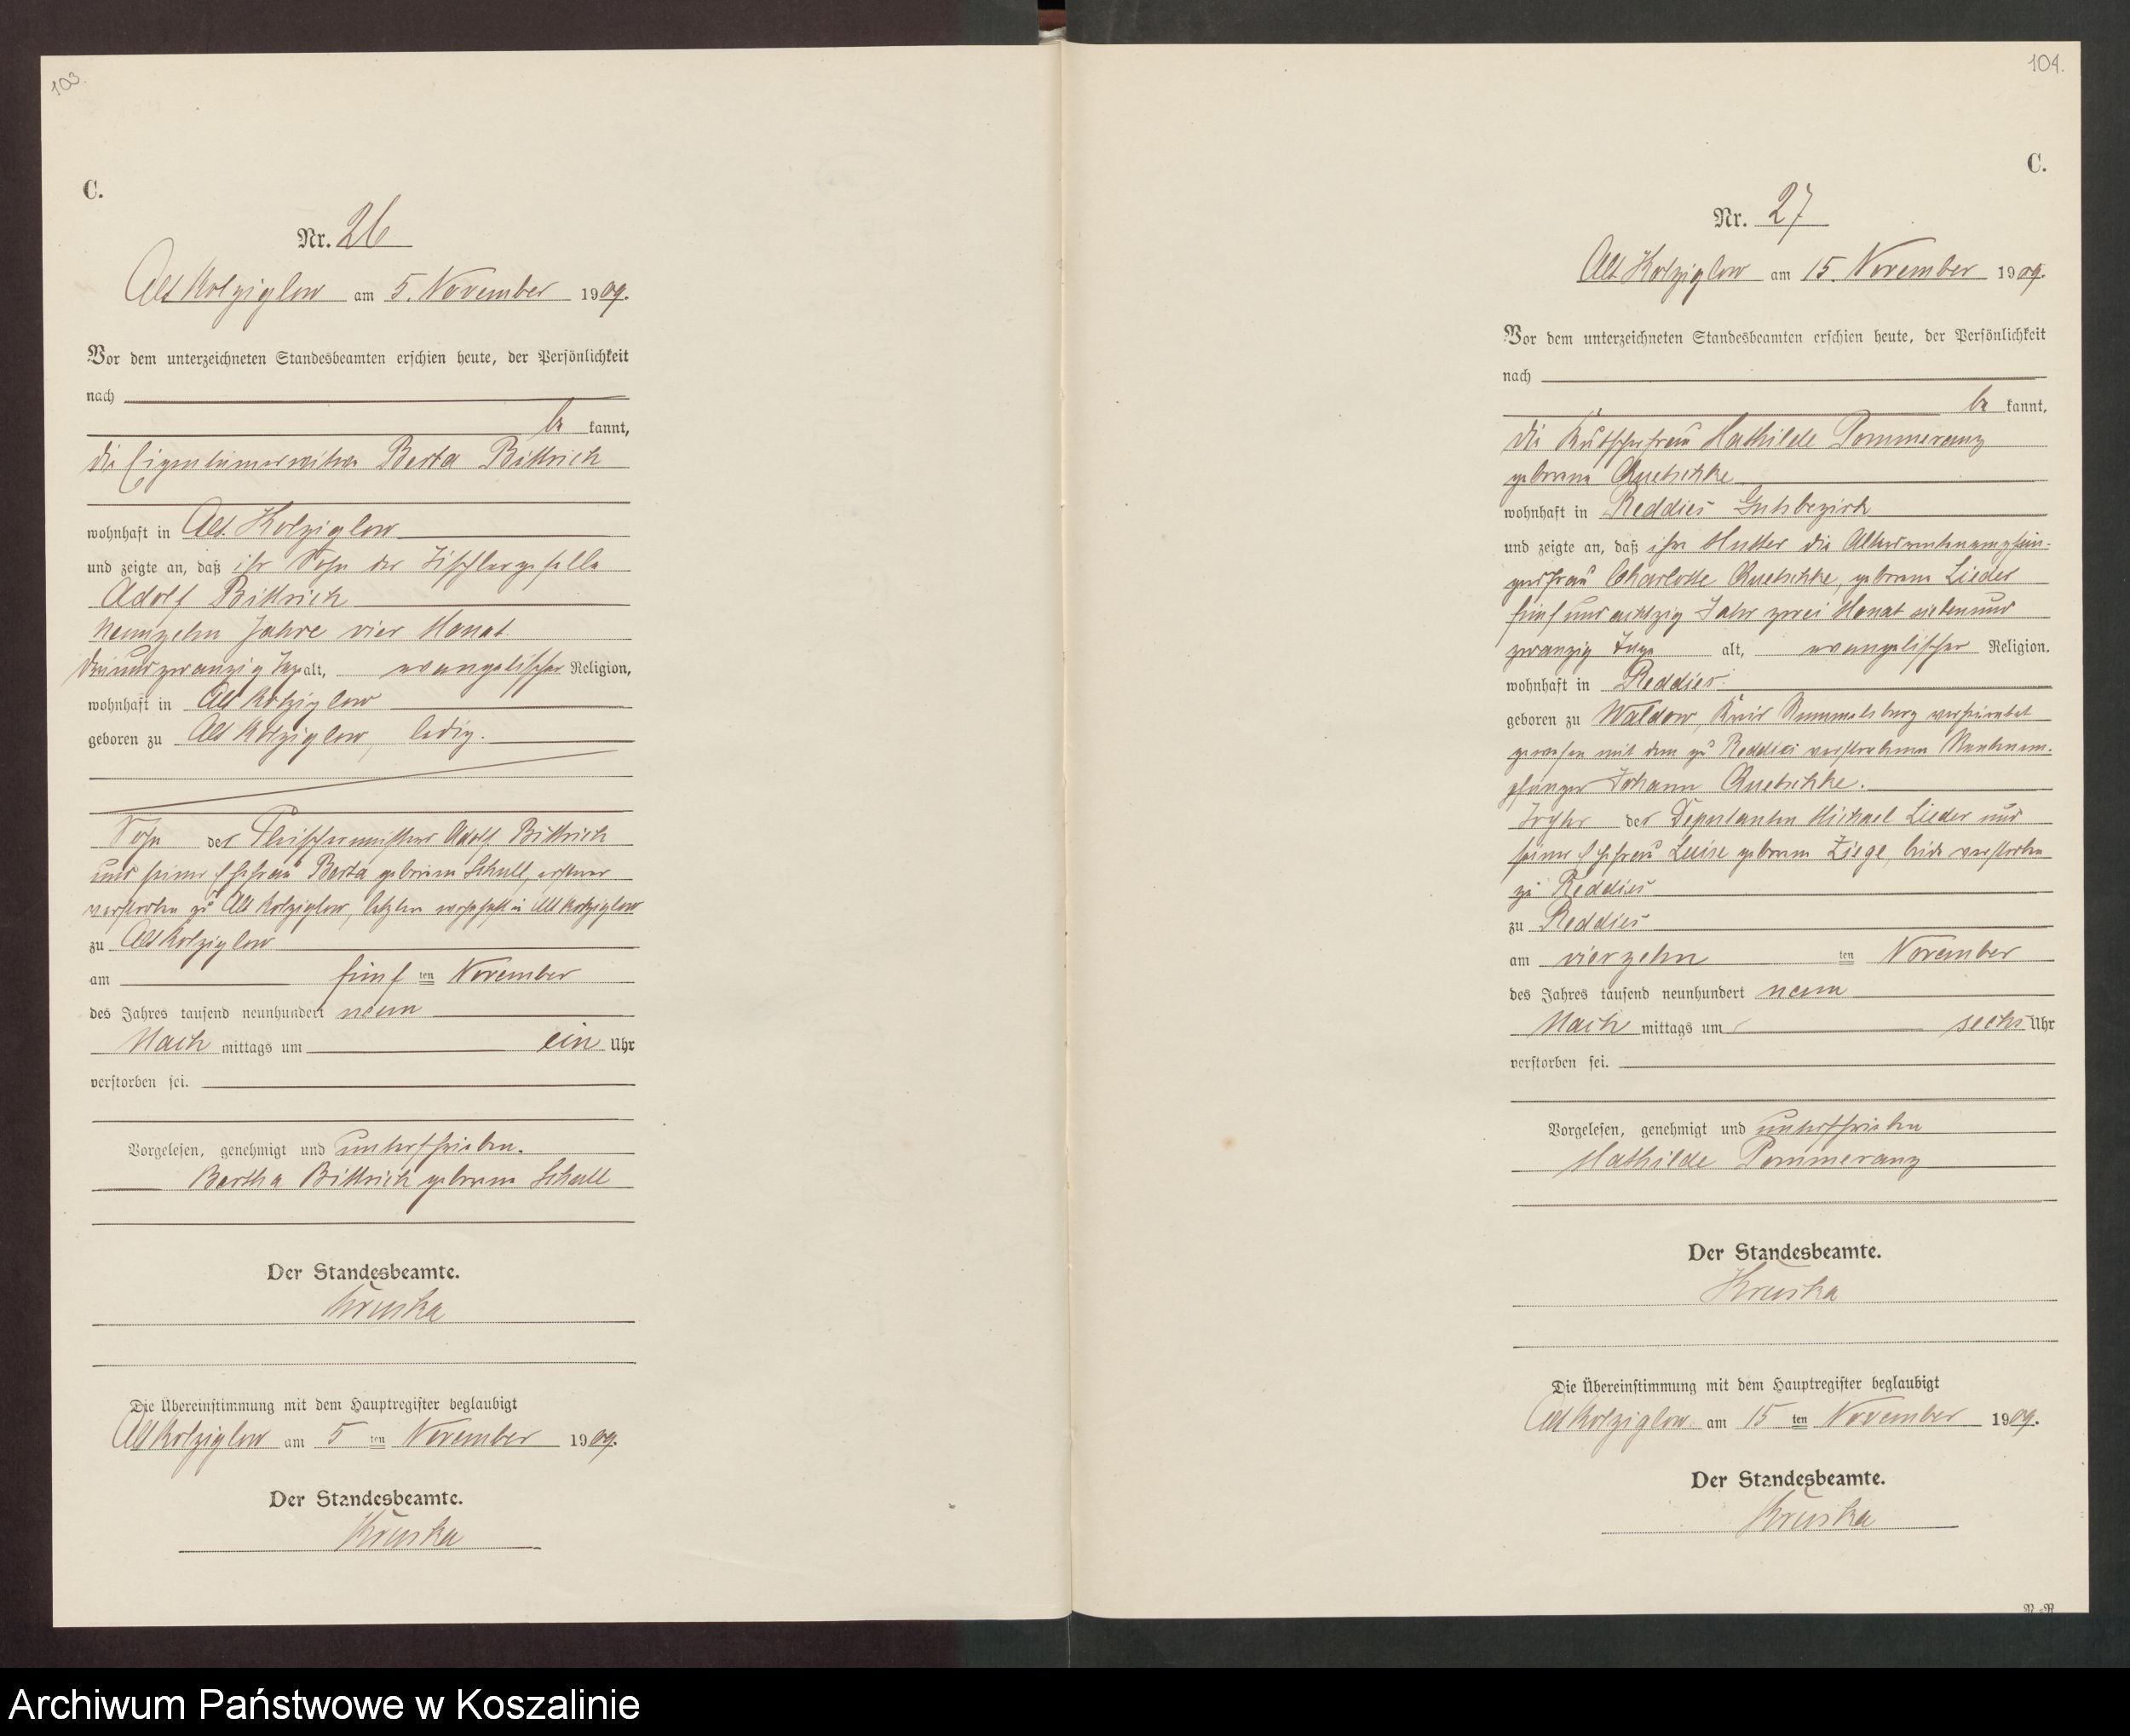 103.
C.
Nr. 26
Alt Kolziglow am 5. November 1909.
Vor dem unterzeichneten Standesbeamten erschien heute, der Persönlichkeit
nach
be kannt,
die Eigentümerwitwe Berta Bittrich
wohnhaft in Alt. Kolziglow
und zeigte an, daß ihr Sohn der Tischlergeselle
Adolf Bittrich
neunzehn Jahre vier Monat
dreiundzwanzig Tage alt, evangelischer Religion,
wohnhaft in Alt Kolziglow
geboren zu Alt Kolziglow, ledig.
Sohn des Fleischermeisters Adolf Bittrich
und seiner Ehefrau Berta geborene Schull, ersterer
verstorben zu Alt Kolziglow, letztere wohnhaft in Alt Kolziglow
zu Alt Kolziglow
am fünf ten November
des Jahres tausend neunhundert neun
Nach mittags um ein Uhr
verstorben sei.
Vorgelesen, genehmigt und unterschrieben.
Bertha Bittrich geborene Schull
Der Standesbeamte.
Kruska
Die Übereinstimmung mit dem Hauptregister beglaubigt
Alt Kolziglow am 5 ten November 1909.
Der Standesbeamte.
Kruska
104.
C.
Nr. 27
Alt Kolziglow am 15. November 1909.
Vor dem unterzeichneten Standesbeamten erschien heute, der Persönlichkeit
nach
be kannt,
die Kutscherfrau Mathilde Pommeranz
geborene Quetschke
wohnhaft in Reddies Gutsbezirk
und zeigte an, daß ihre Mutter die Altersrentenempfän-
gerfrau Charlotte Quetschke, geborene Lieder
fünfundachtzig Jahr zwei Monat siebenund
zwanzig Tage alt, evangelischer Religion.
wohnhaft in Reddies
geboren zu Waldow, Kreis Rummelsburg verheiratet
gewesen mit dem zu Reddies verstorbenen Rentenem-
pfänger Johann Quetschke.
Tochter des Deputanten Michael Lieder und
seiner Ehefrau Luise geborene Ziege, beide verstorben
zu Reddies
zu Reddies
am vierzehn ten November
des Jahres tausend neunhundert neun
Nach mittags um sechs Uhr
verstorben sei.
Vorgelesen, genehmigt und unterschrieben
Mathilde Pommeranz
Der Standesbeamte.
Kruska
Die Übereinstimmung mit dem Hauptregister beglaubigt
Alt Kolziglow am 15 ten November 1909.
Der Standesbeamte.
Kruska
Archiwum Państwowe w Koszalinie